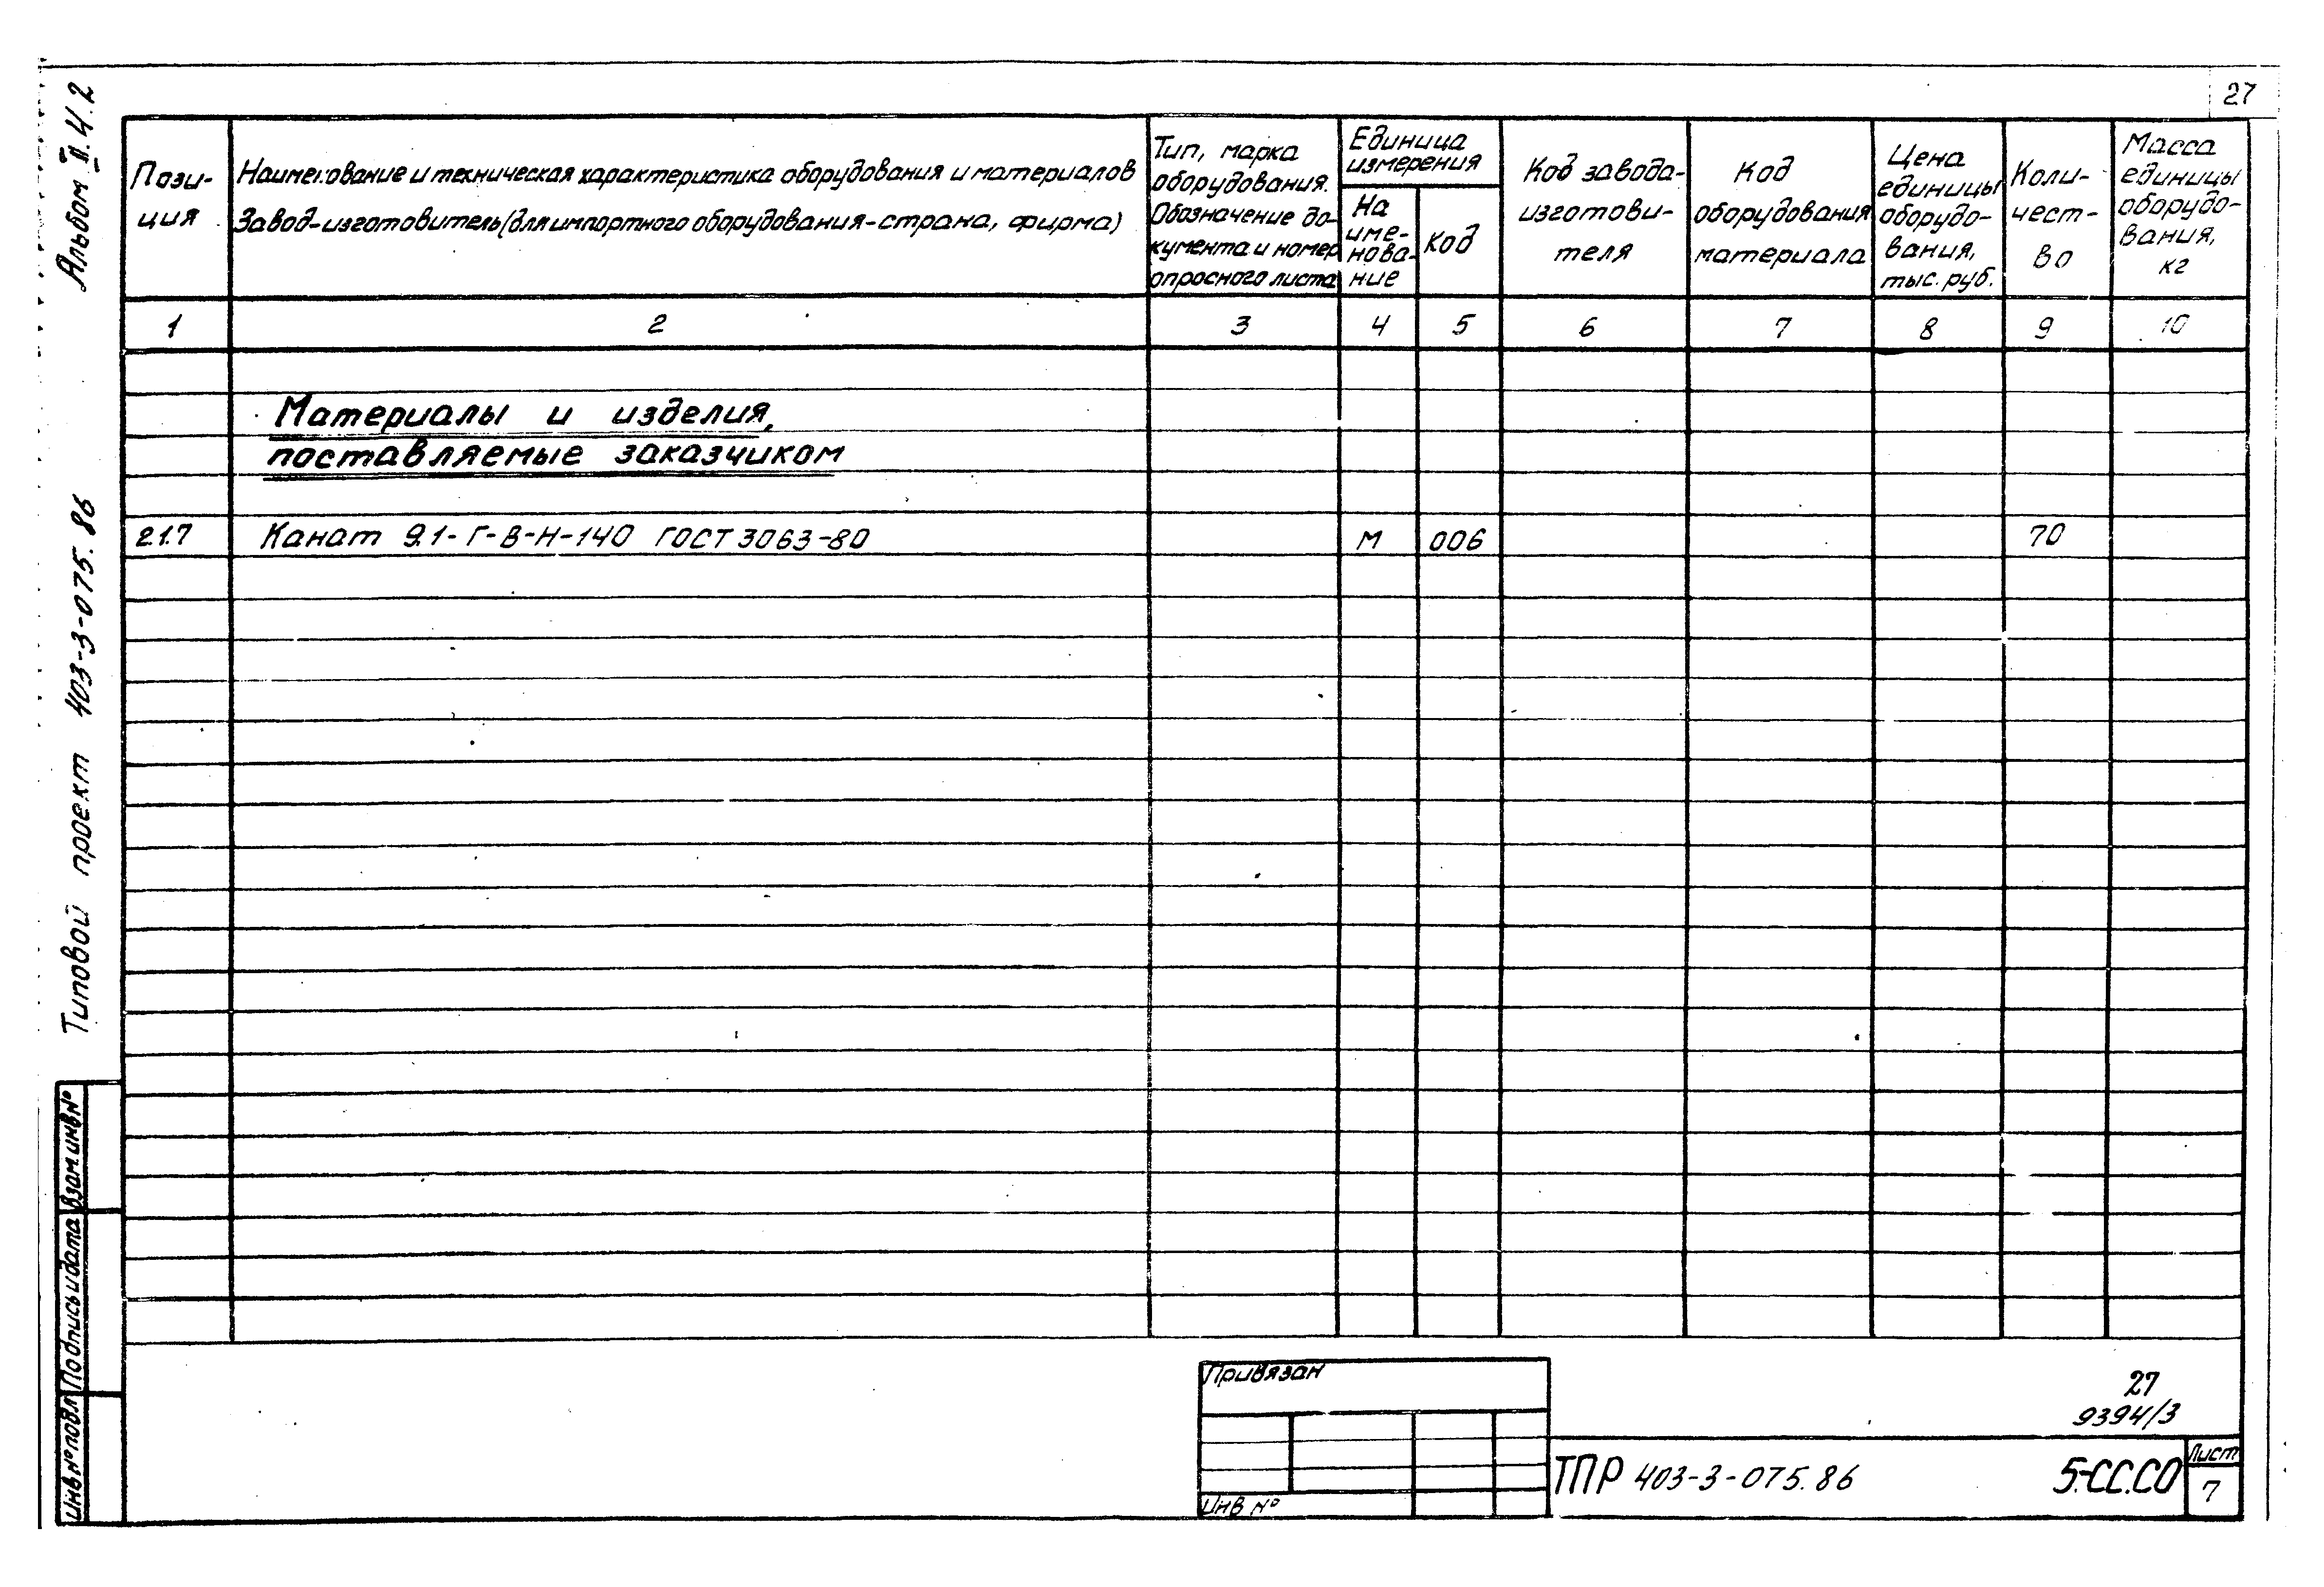 27
Альбом II.4.2
Типовой проект 403-3-075.86
Пози-
ция
Наименование и техническая характеристика оборудования и материалов
Завод-изготовитель (для импортного оборудования-страна, фирма)
Тип, марка
оборудования.
Обозначение до-
кумента и номер
опросного листа
Единица
измерения
На
име-
нова-
ние
Код
Код завода-
изготови-
теля
Код
оборудования
материала
Цена
единицы
оборудо-
вания,
тыс. руб.
Коли-
чест-
во
Масса
единицы
оборудо-
вания,
кг
1 2 3 4 5 6 7 8 9 10
Материалы и изделия,
поставляемые заказчиком
21.7 Канат 9.1-Г-В-Н-140 ГОСТ 3063-80 М 006 70
Взам.инв№
Подпись и дата
Инв№подл
Привязан
Инв №
27
9394/3
ТПР 403-3-075.86
5-СС.СО
Лист
7